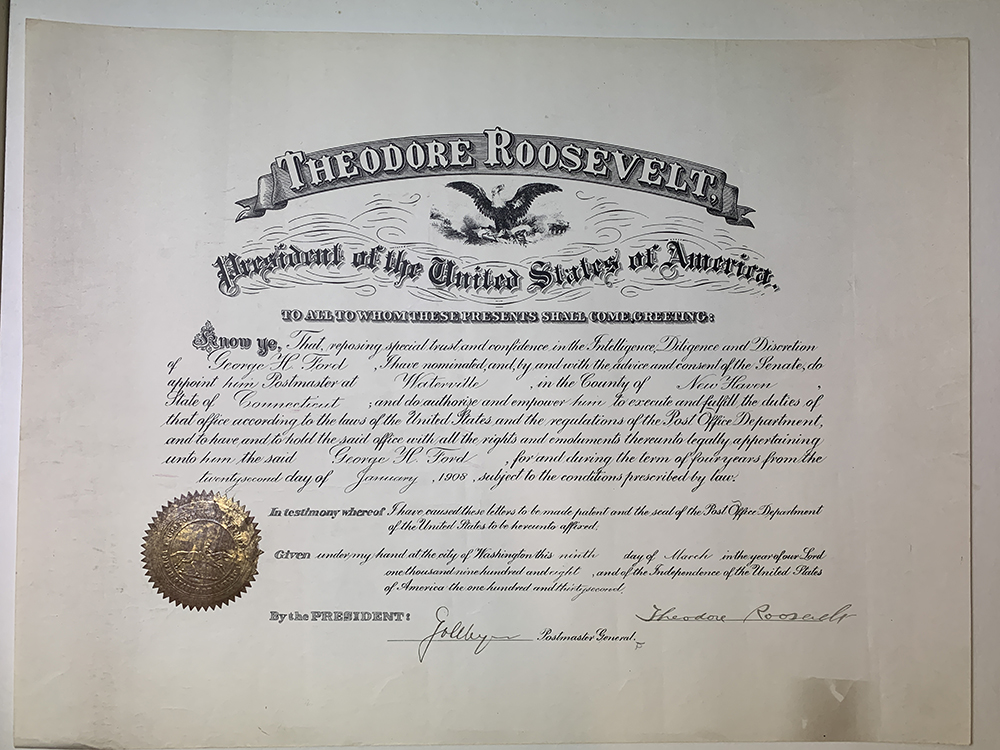 THEODORE ROOSEVELT,
President of the United States of America.
TO ALL TO WHOM THESE PRESENTS SHALL COME, GREETING:
Know ye, That, reposing special trust and confidence in the Intelligence, Diligence and Discretion
of George H. Ford, I have nominated, and, by and with the advice and consent of the Senate, do
appoint him Postmaster at Waterville, in the County of New Haven,
State of Connecticut; and do authorize and empower him to execute and fulfill the duties of
that office according to the laws of the United States and the regulations of the Post Office Department,
and to have and to hold the said office with all the rights and emoluments thereunto legally appertaining
unto him the said George H. Ford, for and during the term of four years from the
twentysecond day of January, 1908, subject to the conditions prescribed by law.
In testimony whereof I have caused these letters to be made patent and the seal of the Post Office Department
of the United States to be hereunto affixed.
Given under my hand at the city of Washington this ninth day of March in the year of our Lord
one thousand nine hundred and eight, and of the Independence of the United States
of America the one hundred and thirtysecond.
By the PRESIDENT: Theodore Roosevelt
Postmaster General.